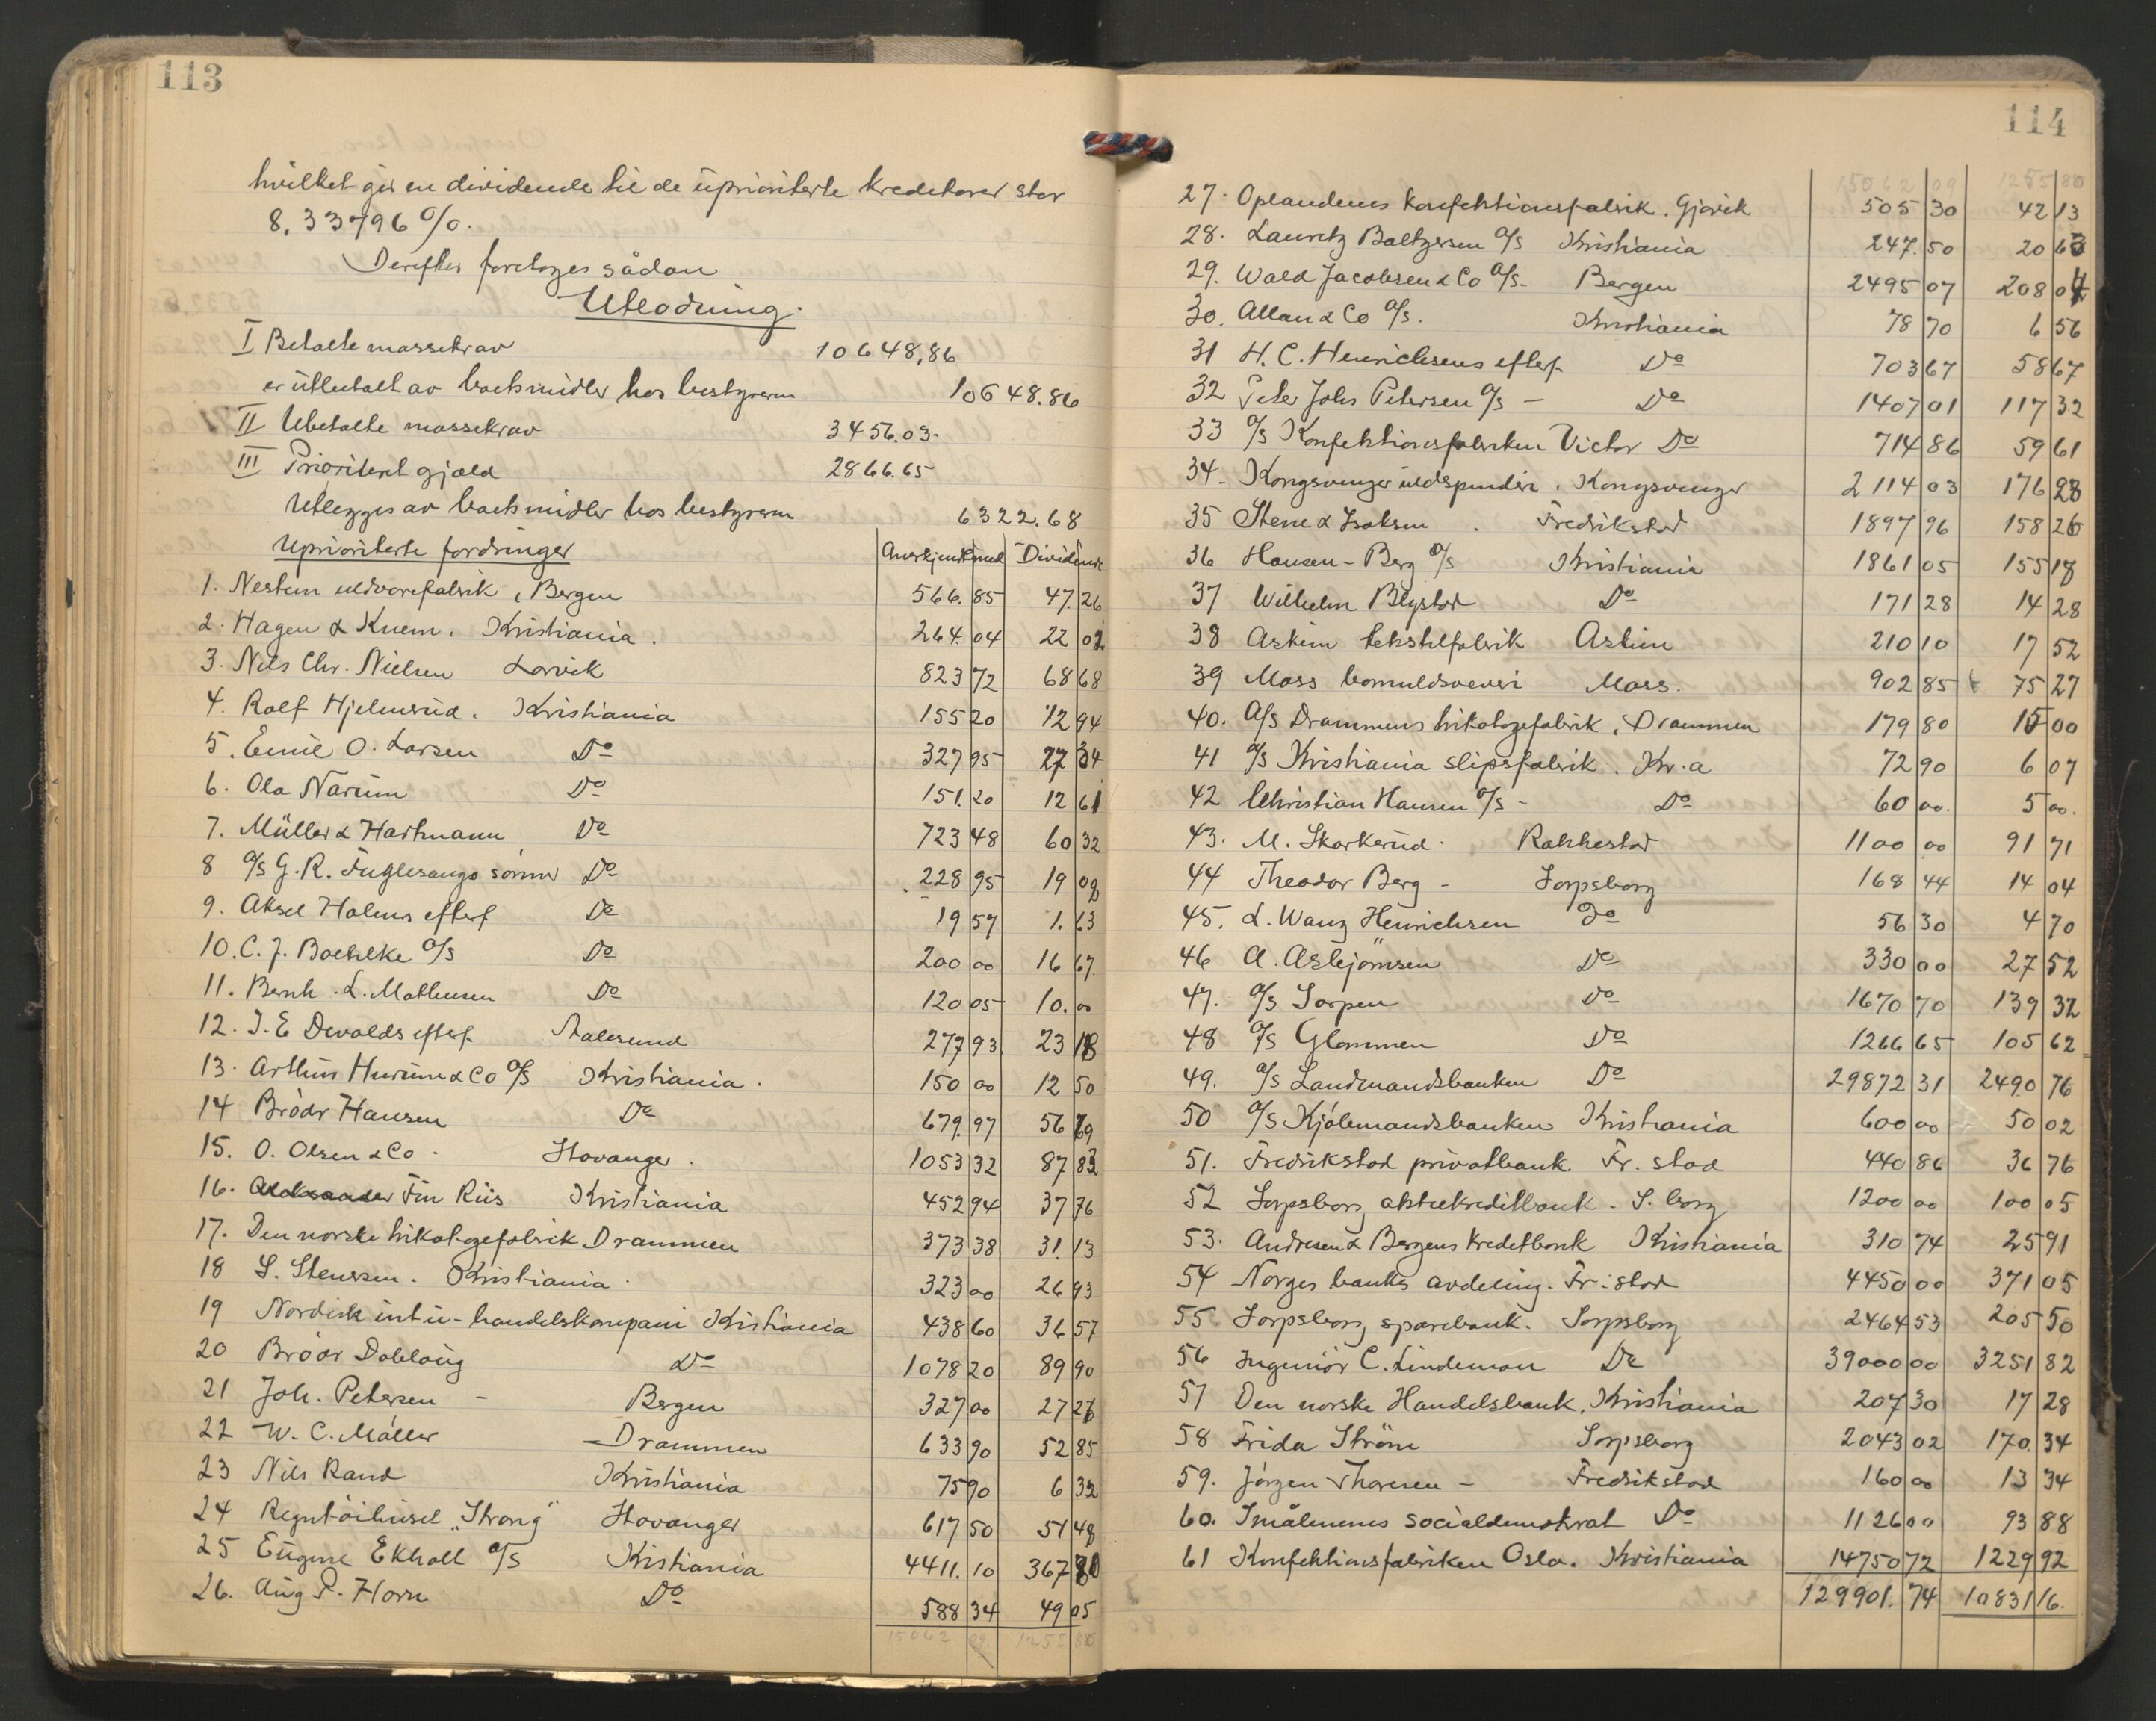 113
hvilket gir en dividende til de uprioriterte kreditorer stor
8,33796 %.
Derefter foretages sådan
Utlodning.
I Betalte massekrav 10648,86
er utbetalt av boets midler hos bestyreren 10648.86
II Ubetalte massekrav 3456.03.
III Prioritert gjæld 2866.65
Utlegges av boets midler hos bestyreren 6322.68
Uprioriterte fordringer Anerkjent med Dividende
1. Nestun uldvarefabrik, Bergen 566.85 47.26
2. Hagen & Knem. Kristiania. 264.04 22 02
3. Nils Chr. Nielsen Larvik 823 72 68 68
4. Rolf Hjelmerud. Kristiania 155 20 12 94
5. Emil O. Larsen Do 327 95 27 34
6. Ola Narum Do 151.20 12 61
7. Müller & Hartmann Do 723 48 60 32
8 A/S G. R. Fuglesangs sönner Do 228 95 19 09
9. Aksel Holms efterf Do 19 57 1.63
10. C. J. Boehlke A/S Do 200 00 16 67.
11. Bernh. L. Mathesen Do 120 05 10.00
12. I. E Devolds efterf. Aalesund 277 93 23 18
13. Arthur Hurum & Co A/S Kristiania. 150 00 12 50
14 Brödr Hansen Do 679.97 56 69
15. O. Olsen & Co. Stavanger. 1053 32 87 83
16. Fin Riis Kristiania 452 94 37 76
17. Den norske trikotagefabrik Drammen 373 38 31.13
18 S. Stenersen. Kristiania. 323 00 26 93
19 Nordisk int u-handelskompani Kristiania 438 60 36 57
20 Brödr Dobloug Do 1078 20 89 90
21 Joh. Petersen - Bergen 327 00 27 26
22 W. C. Möller Drammen 633 90 52 85
23 Nils Rand Kristiania 75 90 6 32
24 Regntöihuset „Strong" Stavanger 617 50 51 48
25 Eugene Ekholt A/S Kristiania 4411.10 367 80
26. Aug P. Horn Do 588 34 49 05
15062 09 1255 80
114
15062 09 1255 80
27. Oplandenes konfektionsfabrik. Gjövik 505 30 42 13
28. Lauritz Baltzersen A/S Kristiania 247.50 20 63
29. Wald Jacobsen & Co A/S. Bergen 2495 07 208 04
30. Allan & Co A/S. Kristiania 78 70 6 56
31 H. C. Henrichsens efterf. Do 703 67 58 67
32 Peter Johs Petersen A/S - Do 1407 01 117 32
33 A/S Konfektionsfabriken Victor Do 714 86 59 61
34. Kongsvinger uldspinderi. Kongsvinger 2114 03 176 28
35 Stene & Isaksen. Fredrikstad 1897 96 158 26
36 Hansen-Berg A/S Kristiania 1861 05 155 18
37 Wilhelm Blystad Do 171 28 14 28
38 Askim tekstilfabrik Askim 210 10 17 52
39 Moss bomuldsveveri Moss. 902 85 75 27
40. A/S Drammens trikotagefabrik, Drammen 179 80 15 00
41 A/S Kristiania slipsfabrik. Kr.a 72 90 6 07
42 Christian Hansen A/S - Do 60 00. 5 00.
43. M. Skarkerud. Rakkestad 1100 00 91 71
44 Theodor Berg - Sarpsborg 168 44 14 04
45. L. Wang Henrichsen Do 56 30 4 70
46 A. Asbjörnsen Do 330 00 27 52
47. A/S Sarpen Do 1670 70 139 32
48 A/S Glommen Do 1266 65 105 62
49. A/S Landmandsbanken Do 29872 31 2490 76
50 A/S Kjöbmandsbanken Kristiania 600 00 50 02
51. Fredrikstad privatbank. Fr. stad 440 86 36 76
52 Sarpsborg aktiekreditbank. S. borg 1200 00 100 05
53. Andresen & Bergens kreditbank Kristiania 310 74 25 91
54 Norges banks avdeling. Fr. stad 4450 00 371 05
55 Sarpsborg sparebank. Sarpsborg 2464 53 205 50
56 Ingeniör C. Lindeman Do 39000 00 3251 82
57 Den norske Handelsbank. Kristiania 207 30 17 28
58 Frida Ström Sarpsborg 2043 02 170.34
59. Jörgen Thoresen - Fredrikstad 160 00 13 34
60. Smålenenes socialdemokrat Do 1126 00 93 88
61 Konfektionsfabriken Oslo. Kristiania 14750 72 1229 92
129901.74 10831 16.